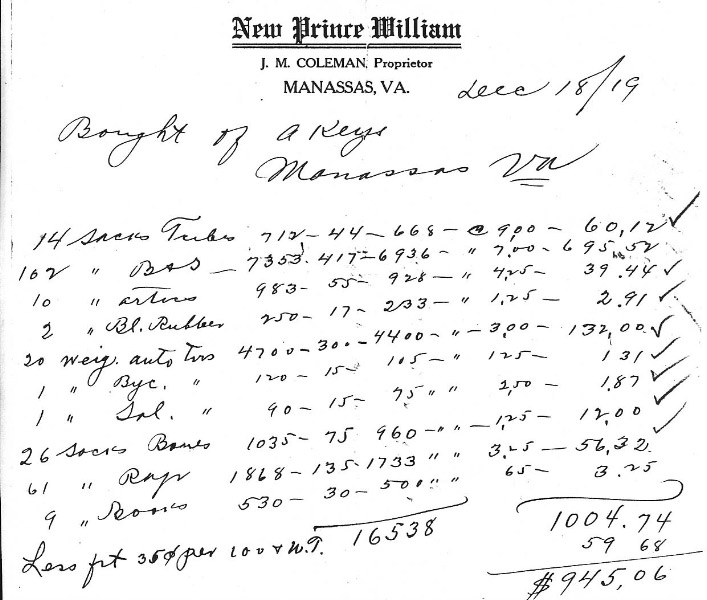 New Prince William
J. M. COLEMAN, Proprietor
MANASSAS, VA.
Dec 18/19
Bought of A Keys
Manassas Va
14 Sacks Tubes 712 - 44 - 668 - @ 9,00 - 60,12 ✓
102 " B&S - 7353 - 417 - 6936 - " 7,00 - 695,52
10 " arties 983 - 55 - 928 - " 4,25 - 39.44 ✓
2 " Bl. Rubber 250 - 17 - 233 - " 1,25 - 2.91 ✓
20 weig. auto Tirs 4700 - 300 - 4400 - " - 3,00 - 132,00 ✓
1 " Byc. " 120 - 15 - 105 - " 125 - 131 ✓
1 " Sol. " 90 - 15 - 75 " " 2,50 - 1,87 ✓
26 Sacks Bones 1035 - 75 960 - " " - 1,25 - 12,00 ✓
61 " Rags 1868 - 135 - 1733 " " 3,25 - 56,32
9 " Books 530 - 30 - 500 " " 65 - 3.25
16538 1004.74
Less frt 35¢ per 100 # W.T. 59 68
$945,06